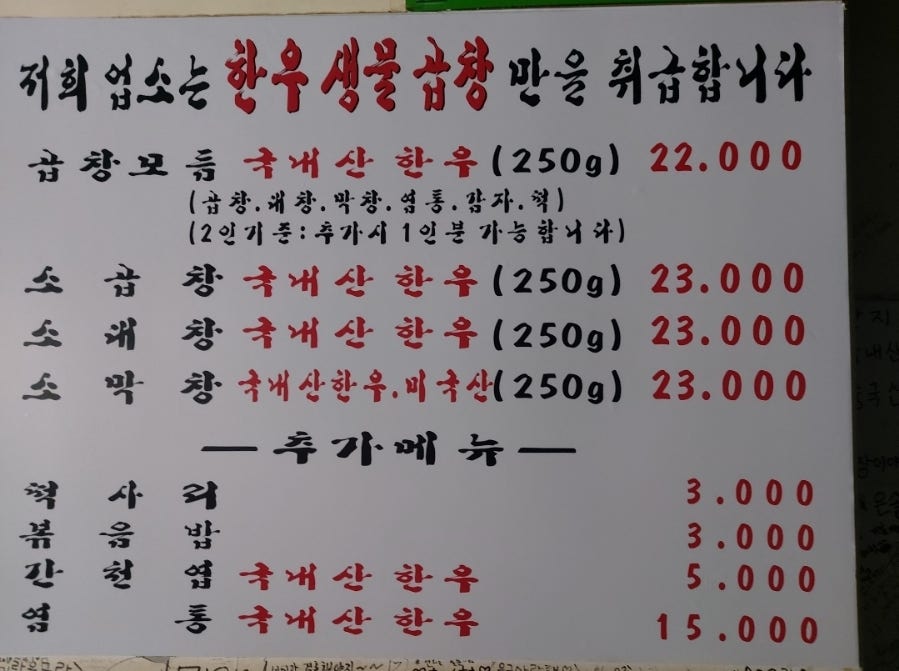 저희 업소는 한우 생물 곱창 만을 취급합니다
곱창모듬 국내산 한우 (250g) 22.000
(곱창.대창.막창.염통.감자.떡)
(2인기준:추가시 1인분 가능합니다)
소곱창 국내산 한우 (250g) 23.000
소대창 국내산 한우 (250g) 23.000
소막창 국내산한우.미국산(250g) 23.000
추가메뉴
떡사리 3.000
볶음밥 3.000
간천엽 국내산 한우 5.000
염통 국내산 한우 15.000